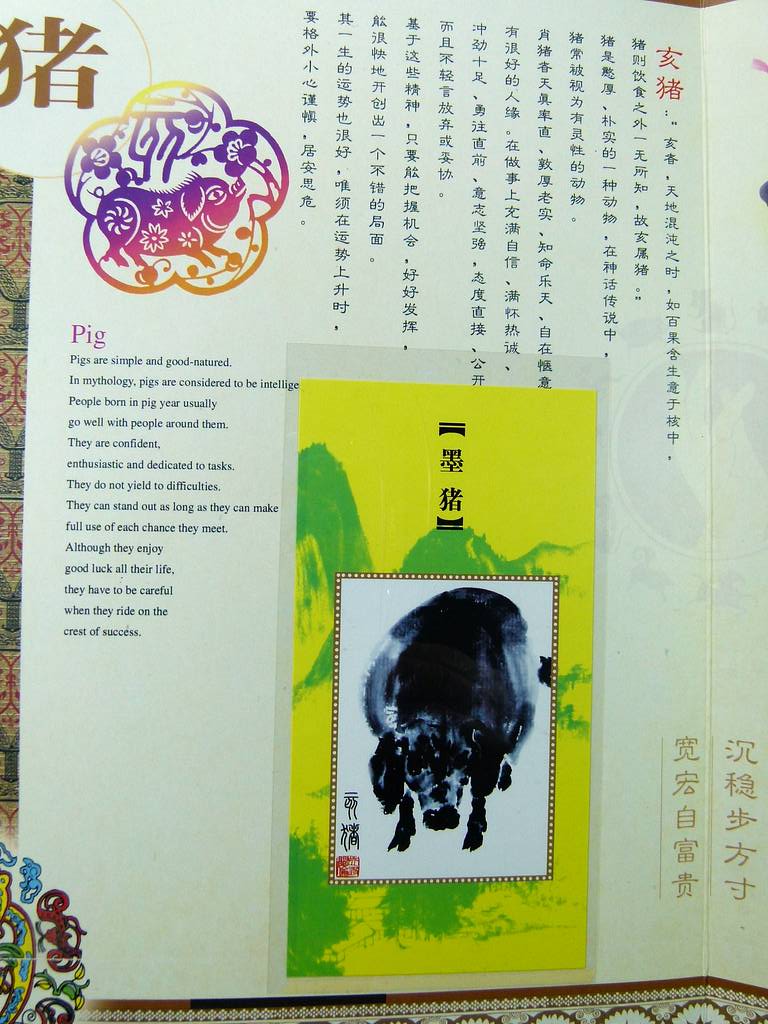 猪
亥猪：“亥者，天地混沌之时，如百果含生意于核中，
猪则饮食之外一无所知，故亥属猪。”
猪是憨厚、朴实的一种动物，在神话传说中，
猪常被视为有灵性的动物。
肖猪者天真率直、敦厚老实、知命乐天、自在惬意
有很好的人缘。在做事上充满自信、满怀热诚、
冲劲十足、勇往直前、意志坚强，态度直接、公开
而且不轻言放弃或妥协。
基于这些精神，只要能把握机会，好好发挥，
能很快地开创出一个不错的局面。
其一生的运势也很好，唯须在运势上升时，
要格外小心谨慎，居安思危。
Pig
Pigs are simple and good-natured.
In mythology, pigs are considered to be intellige
People born in pig year usually
go well with people around them.
They are confident,
enthusiastic and dedicated to tasks.
They do not yield to difficulties.
They can stand out as long as they can make
full use of each chance they meet.
Although they enjoy
good luck all their life,
they have to be careful
when they ride on the
crest of success.
【墨猪】
亥猪
沉稳步方寸
宽宏自富贵